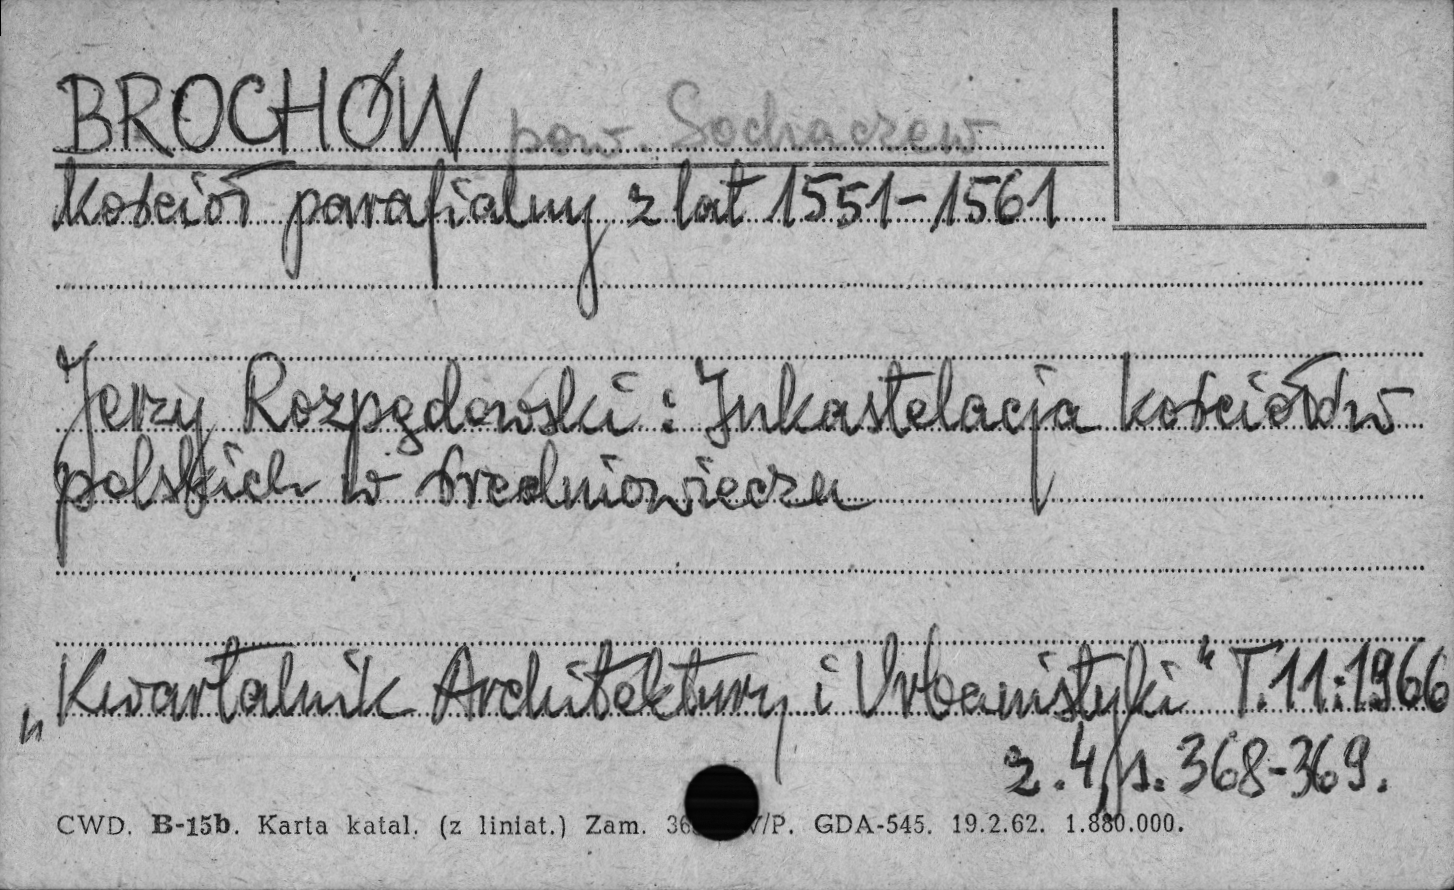 BROCHÓW pow. Sochaczew
kościół parafialny z lat 1551-1561
Jerzy Rozpędowski: Inkastelacja kościołów
polskich w średniowieczu
„Kwartalnik Architektury i Urbanistyki" T.11:1966
z.4, s. 368-369.
CWD. B-15b. Karta katal. (z liniat.) Zam. V/P. GDA-545. 19.2.62. 1.880.000.